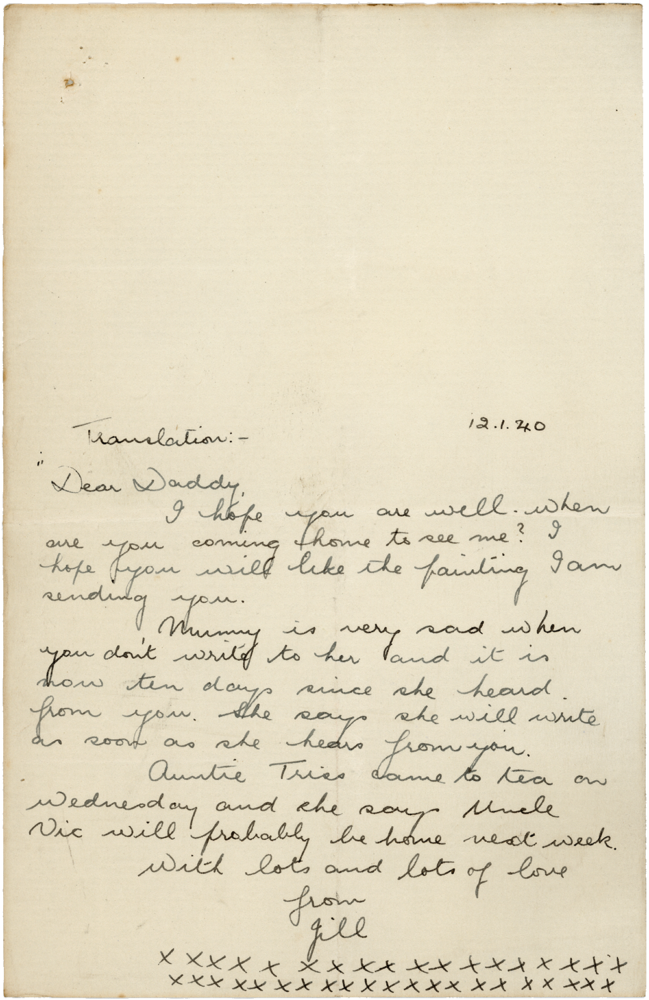 12.1.40
Translation:-
"Dear Daddy,
I hope you are well. When
are you coming home to see me? I
hope you will like the painting I am
sending you.
Mummy is very sad when
you don't write to her and it is
now ten days since she heard
from you. She says she will write
as soon as she hears from you.
Auntie Triss came to tea on
Wednesday and she says Uncle
Vic will probably be home next week.
With lots and lots of love
from
Jill
x x x x x x x x x x x x x x x x x x
x x x x x x x x x x x x x x x x x x x x